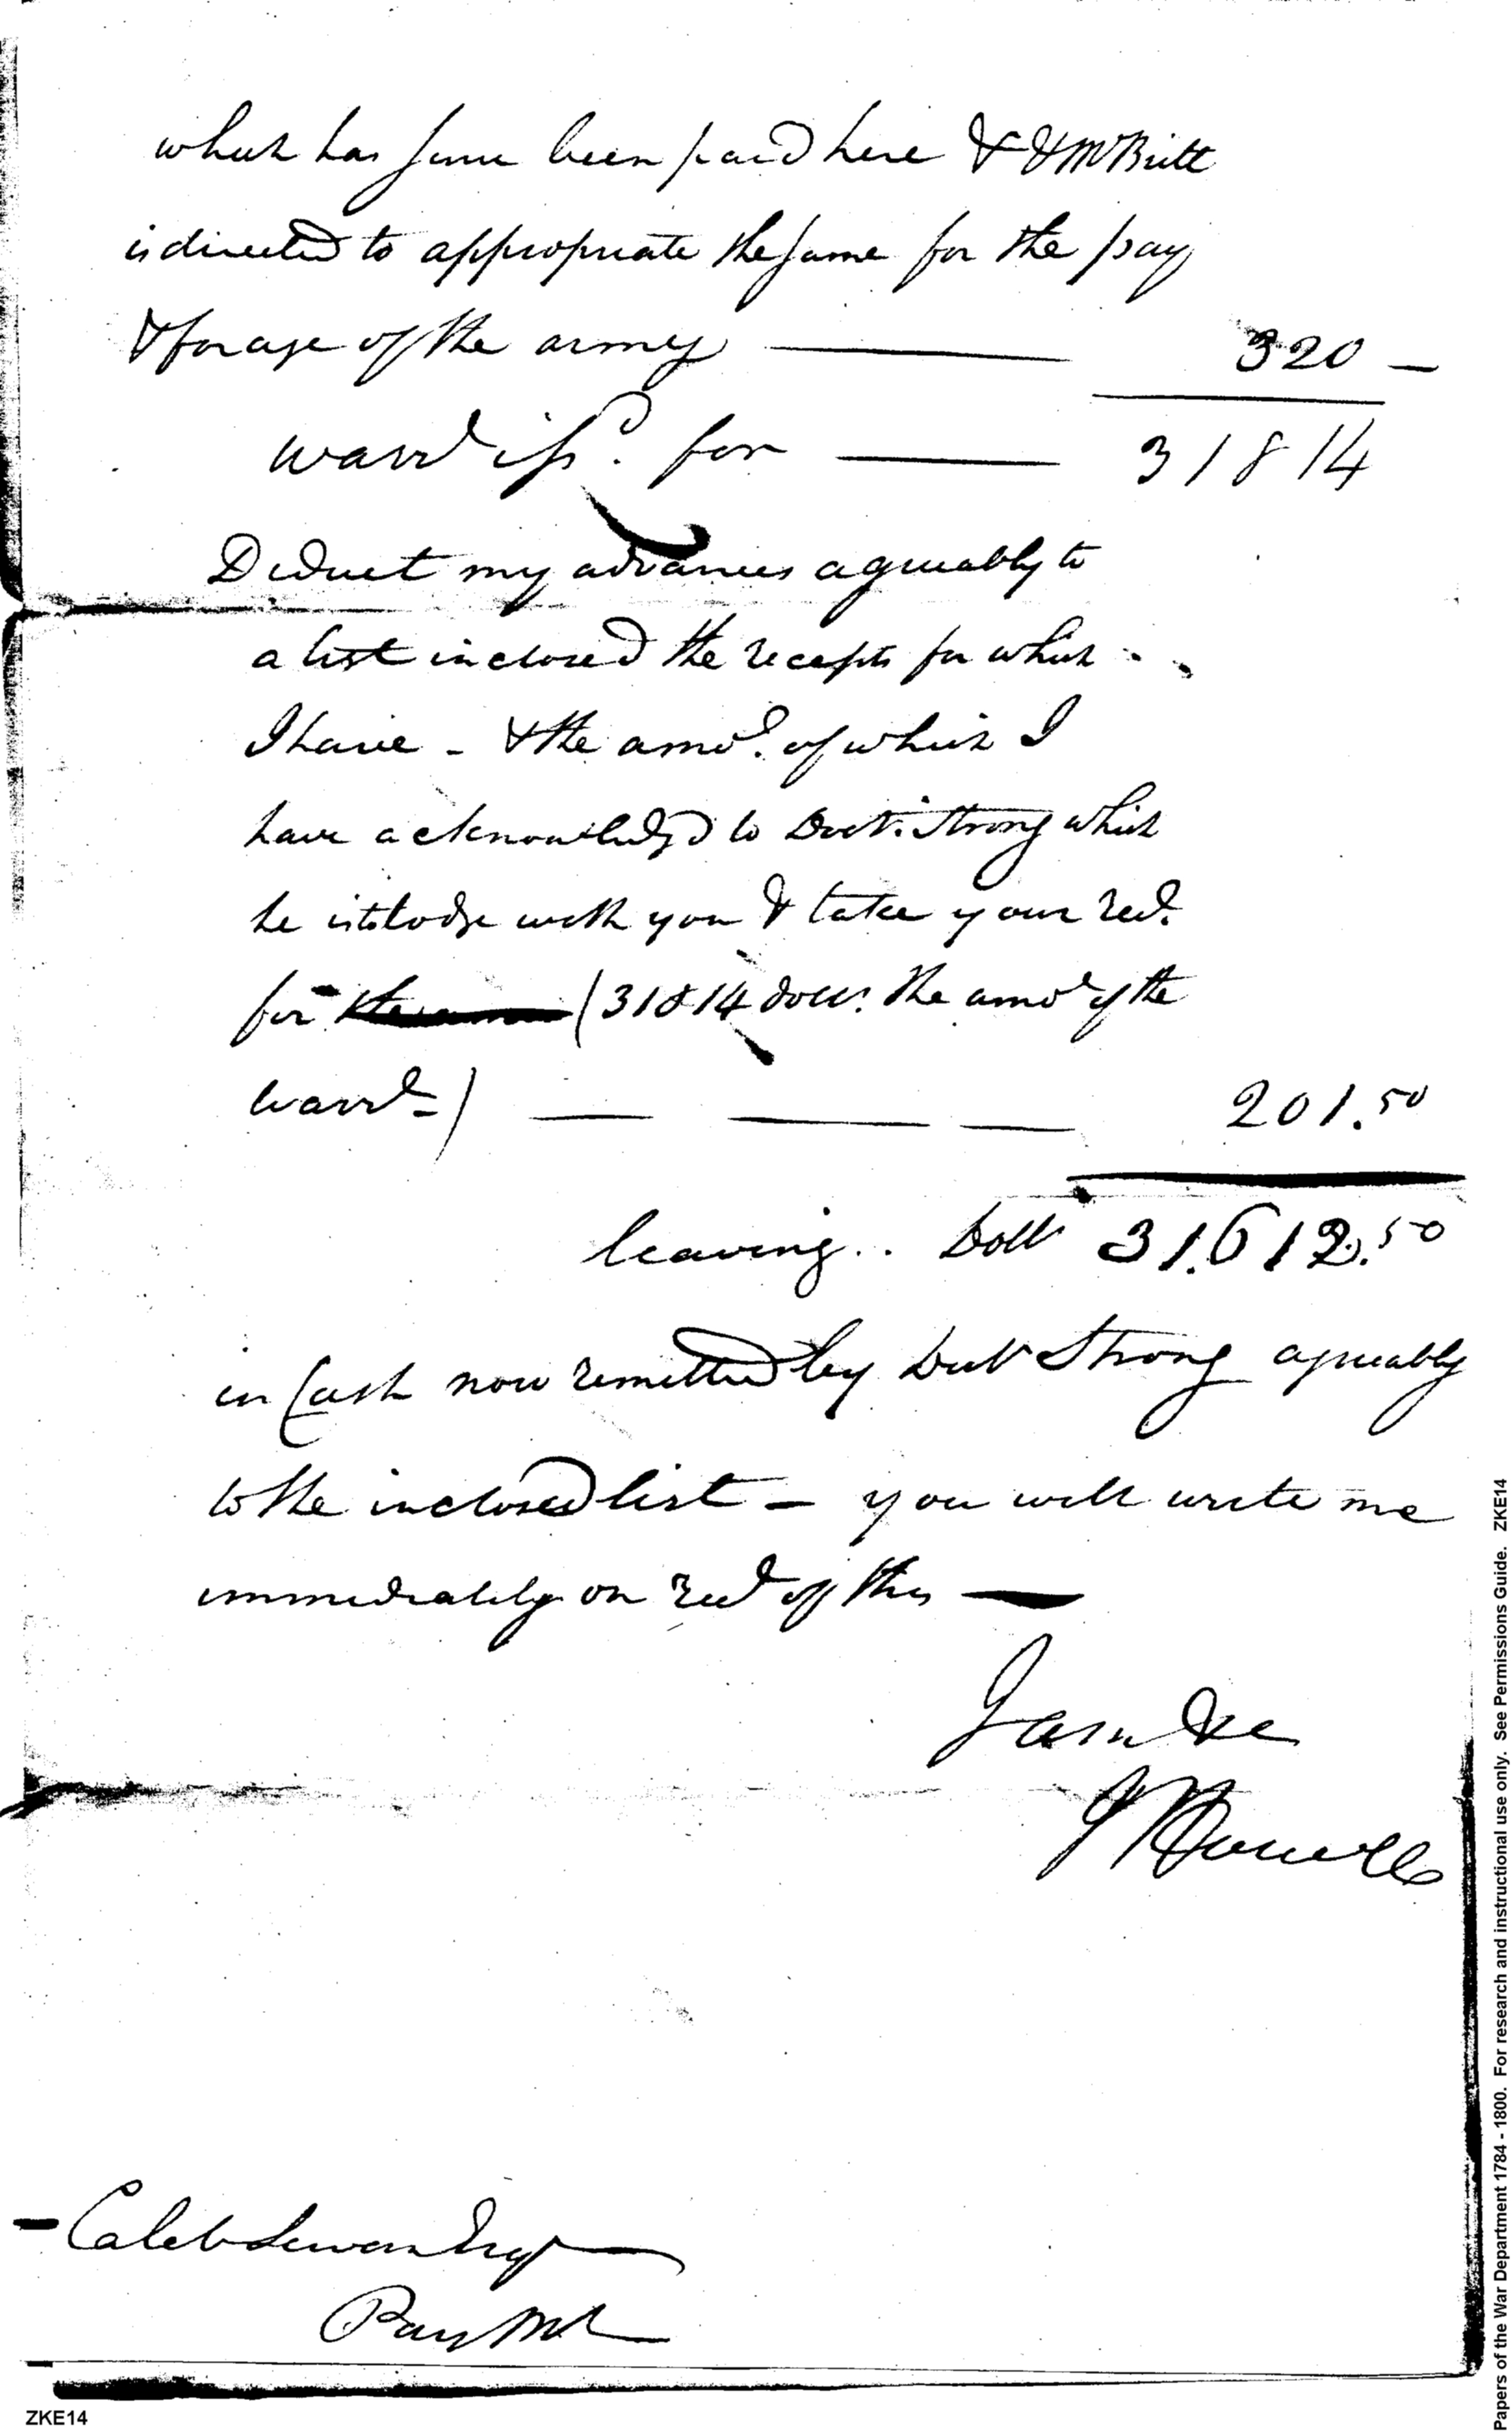 which has since been paid here & Mr Britt
is directed to appropriate the same for the pay
& forage of the army — 320 —
warrt iss'd. for — 31814
Deduct my advances agreeably to
a list inclosed the receipts for which
I have - & the amot. of which I
have acknowledged to Doctr. Strong which
he is to lodge with you & take your rect.
for (31814 dolls. the amot of the
warrt-) — — — 201.50
leaving.. Dolls 31.612.50
in Cash now remitted by Doctr Strong agreeably
to the inclosed list - you will write me
immediately on rect of this —
I am &c
J Howell
Caleb Swan Esqr
Pay Mr
ZKE14
Papers of the War Department 1784 - 1800. For research and instructional use only. See Permissions Guide. ZKE14